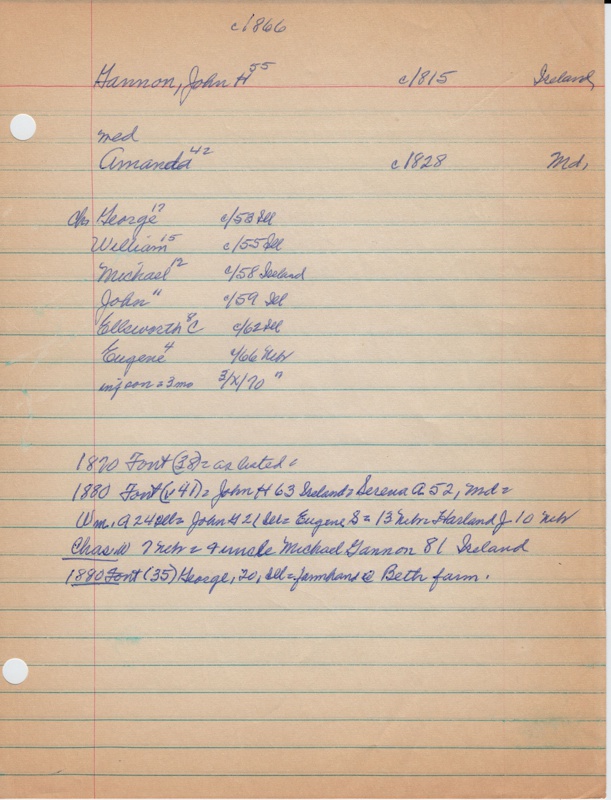 c1866
Gannon, John H 55 c1815 Ireland,
med
Amanda 42 c1828 Md,
chs George 17 c/53 Ill
William 15 c/55 Ill
Michael 12 c/58 Ireland
John 11 c/59 Ill
Ellsworth 8 C c/62 Ill
Eugene 4 c/66 Nebr
inf son = 3 mo 3/x/70 "
1870 Font (38) = as listed =
1880 Font (v 41) = John H 63 Ireland = Serena A. 52, Md =
Wm. A 24 Ill = John H 21 Ill = Eugene S = 13 Nebr = Harland J 10 Nebr
Chas W 7 Nebr = + uncle Michael Gannon 81 Ireland
1880 Font (35) George, 20, Ill = farmhand @ Beth farm.